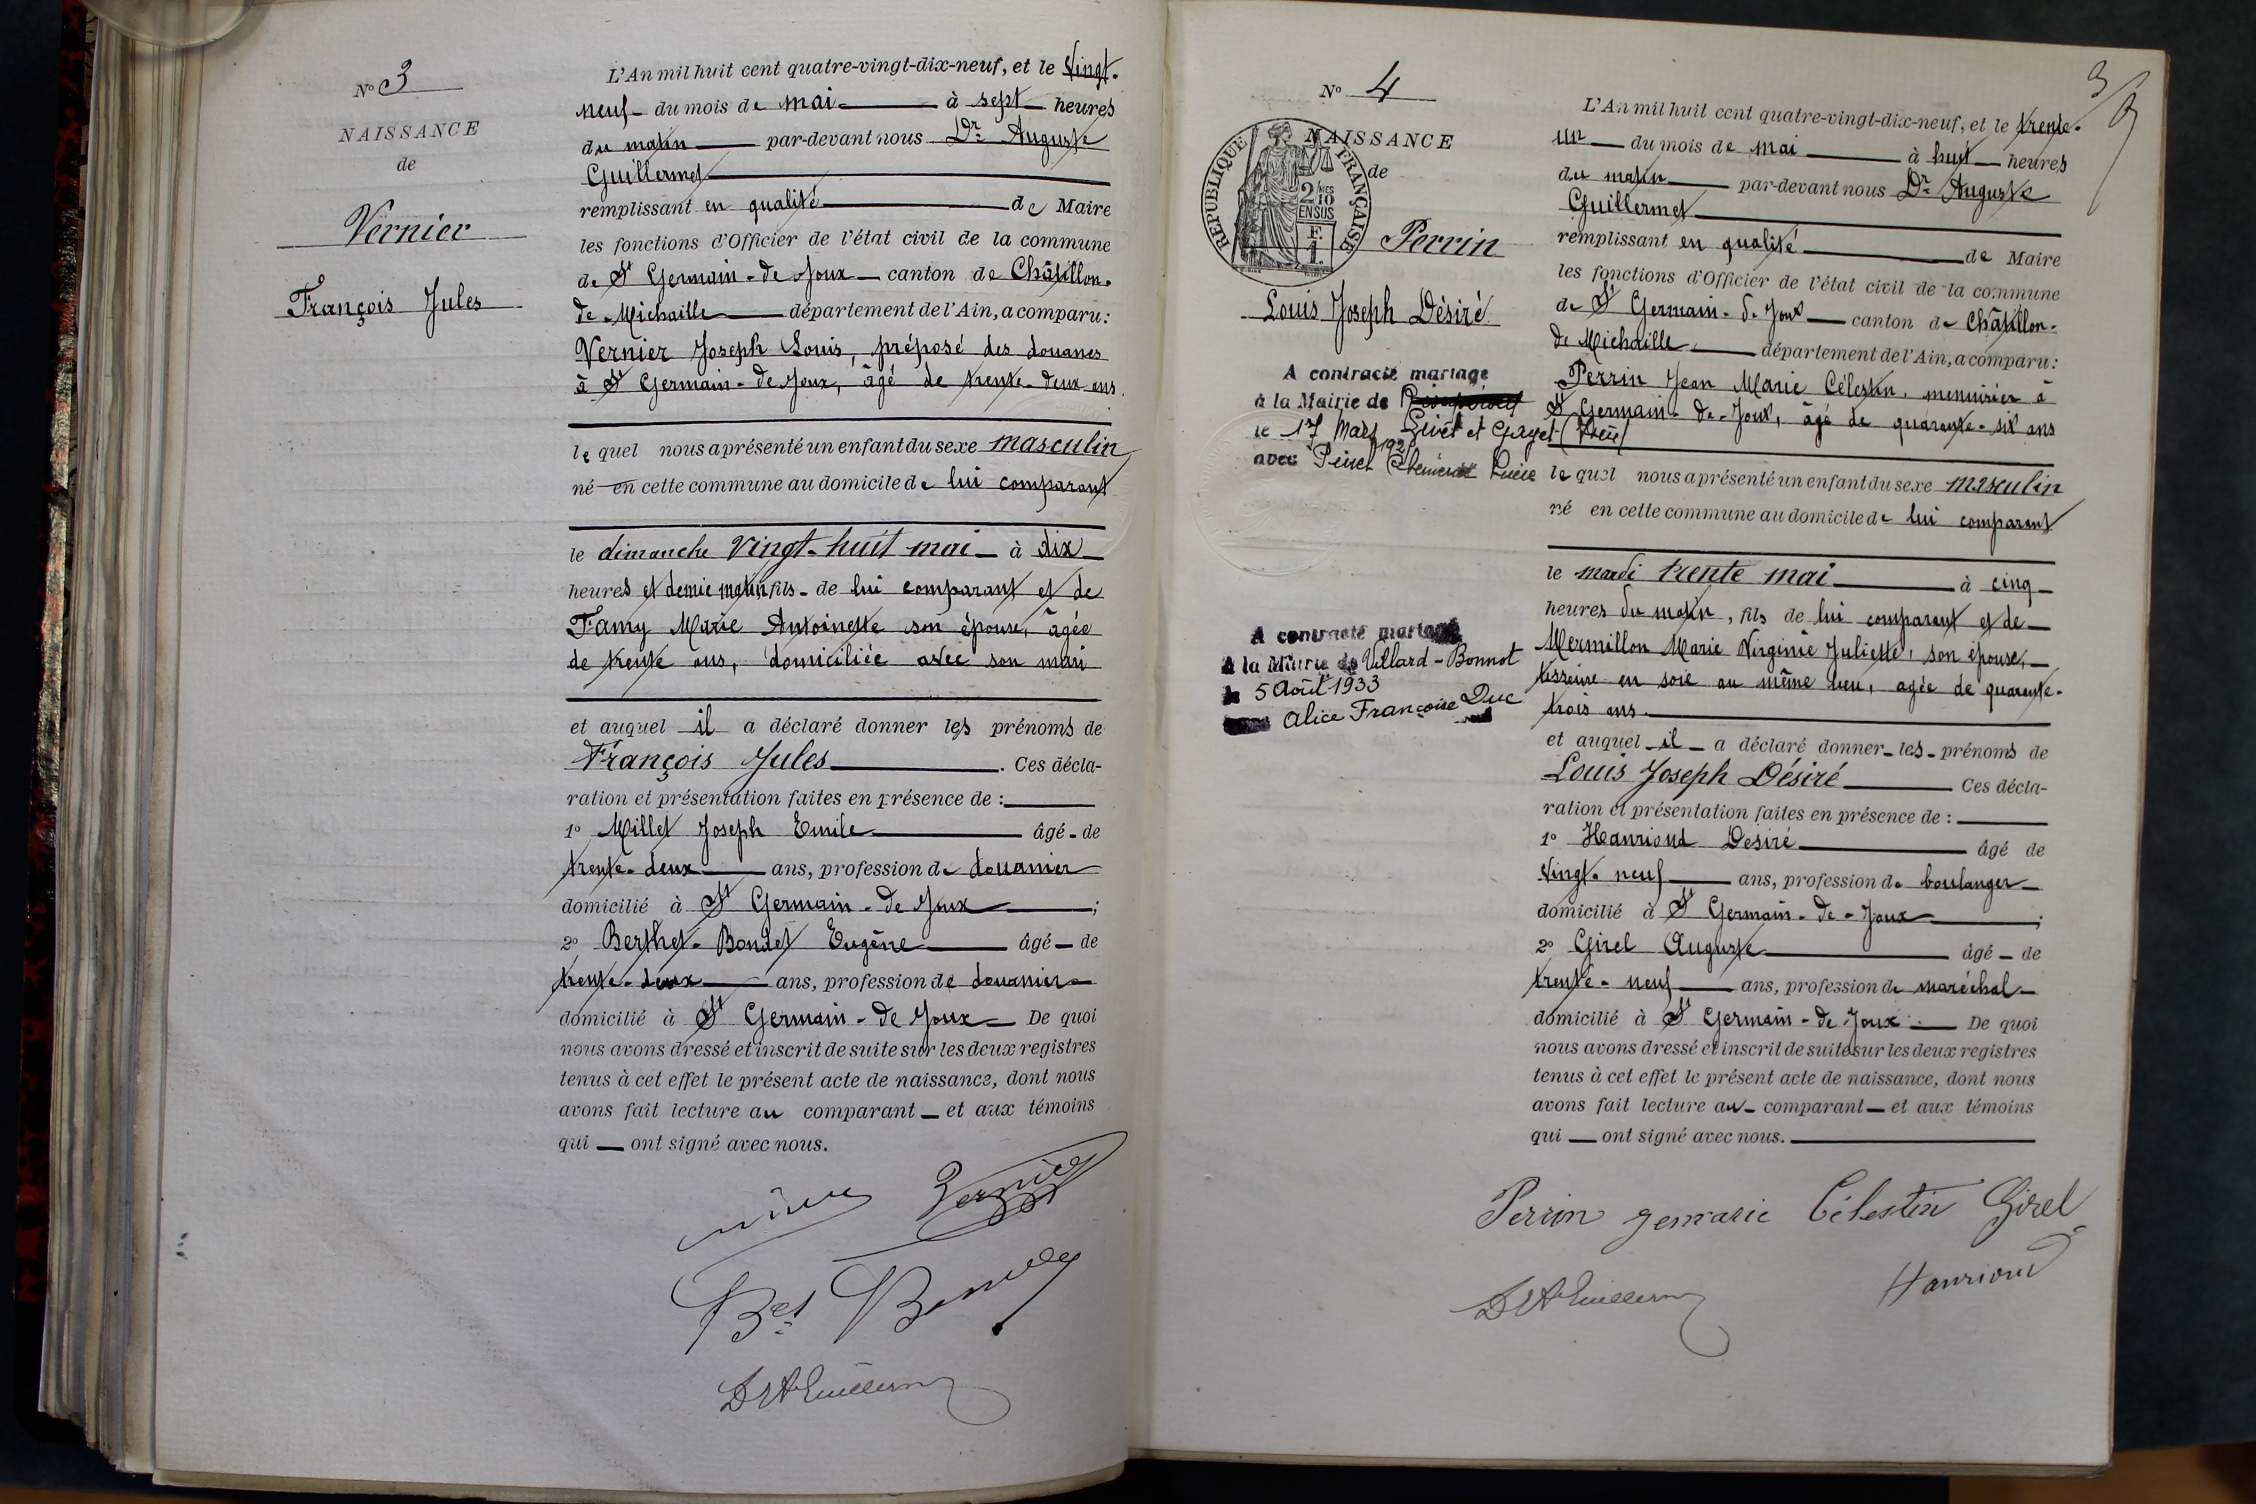 N° 3
NAISSANCE
de
Vernier
François Jules
L'An mil huit cent quatre-vingt-dix-neuf, et le vingt-
neuf du mois de mai à sept heures
du matin par-devant nous Dr Auguste
Guillermet
remplissant en qualité de Maire
les fonctions d'Officier de l'état civil de la commune
de St Germain-de Joux canton de Châtillon-
de-Michaille département de l'Ain, a comparu:
Vernier Joseph Louis, préposé des douanes
à St Germain-de Joux, âgé de trente-deux ans
lequel nous a présenté un enfant du sexe masculin
né en cette commune au domicile de lui comparant
le dimanche vingt-huit mai à dix
heures et demie matin fils de lui comparant et de
Famy Marie Antoinette son épouse, âgée
de trente ans, domiciliée avec son mari
et auquel il a déclaré donner les prénoms de
François Jules. Ces décla-
ration et présentation faites en présence de :
1° Millet Joseph Emile âgé de
trente-deux ans, profession de douanier
domicilié à St Germain-de Joux ;
2° Berthet-Bondet Eugène âgé de
trente-deux ans, profession de douanier
domicilié à St Germain-de Joux De quoi
nous avons dressé et inscrit de suite sur les deux registres
tenus à cet effet le présent acte de naissance, dont nous
avons fait lecture au comparant et aux témoins
qui ont signé avec nous.
Vernier
Bet Bondet
Dr A Guillermet
3
N° 4
NAISSANCE
de
RÉPUBLIQUE FRANÇAISE
2/10
EN SUS
F.
1.
Perrin
Louis Joseph Désiré
A contracté mariage
à la Mairie de
le 17 mars Givet et
avec
A contracté mariage
à la Mairie de Villard-Bonnot
le 5 Août 1933
Alice Françoise Duc
L'An mil huit cent quatre-vingt-dix-neuf, et le trente-
un du mois de mai à huit heures
du matin par-devant nous Dr Auguste
Guillermet
remplissant en qualité de Maire
les fonctions d'Officier de l'état civil de la commune
de St Germain-de Joux canton de Châtillon-
de Michaille département de l'Ain, a comparu:
Perrin Jean Marie Célestin, menuisier à
St Germain-de-Joux, âgé de quarante-six ans
lequel nous a présenté un enfant du sexe masculin
né en cette commune au domicile de lui comparant
le mardi trente mai à cinq
heures du matin, fils de lui comparant et de
Mermillon Marie Virginie Juliette, son épouse,
tisseuse en soie au même lieu, agée de quarante-
trois ans.
et auquel il a déclaré donner les prénoms de
Louis Joseph Désiré Ces décla-
ration et présentation faites en présence de :
1° Hanrioud Désiré âgé de
vingt-neuf ans, profession de boulanger
domicilié à St Germain-de-Joux ;
2° Girel Auguste âgé de
trente-neuf ans, profession de maréchal
domicilié à St Germain-de Joux De quoi
nous avons dressé et inscrit de suite sur les deux registres
tenus à cet effet le présent acte de naissance, dont nous
avons fait lecture au comparant et aux témoins
qui ont signé avec nous.
Perrin Célestin Girel
Dr A Guillermet Hanrioud